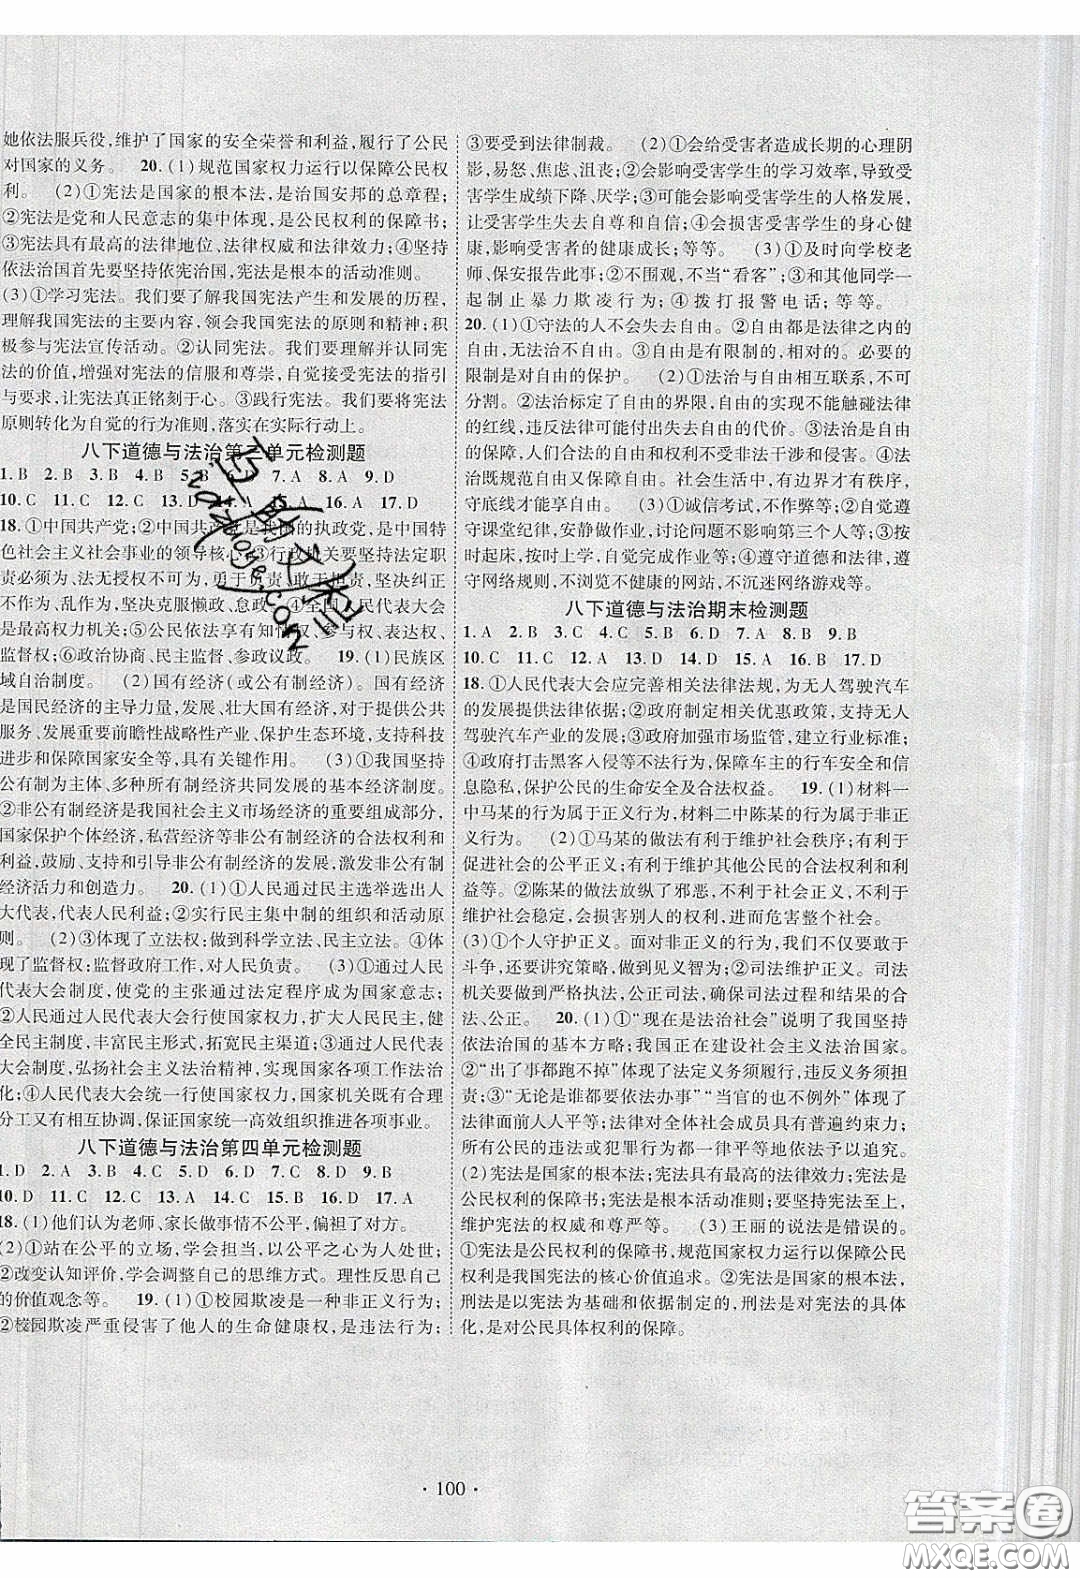 她依法服兵役,维护了国家的安全荣誉和利益,履行了公民
对国家的义务。 20.(1)规范国家权力运行以保障公民权
利。 (2)①宪法是国家的根本法,是治国安邦的总章程;
②宪法是党和人民意志的集中体现,是公民权利的保障书;
③宪法具有最高的法律地位、法律权威和法律效力;④坚持
依法治国首先要坚持依宪治国,宪法是根本的活动准则。
(3)①学习宪法。我们要了解我国宪法产生和发展的历程,
理解我国宪法的主要内容,领会我国宪法的原则和精神;积
极参与宪法宣传活动。②认同宪法。我们要理解并认同宪
法的价值,增强对宪法的信服和尊崇,自觉接受宪法的指引
与要求,让宪法真正铭刻于心。③践行宪法。我们要将宪法
原则转化为自觉的行为准则,落实在实际行动上。
八下道德与法治第三单元检测题
1.B 2.B 3.B 4.B 5.B 6. 7.A 8.A 9.D
10.C 11.C 12.C 13.D 14.A 15.A 16.A 17.D
18.①中国共产党;②中国共产党是我国的执政党,是中国特
色社会主义社会事业的领导核心③行政机关要坚持法定职
责必须为、法无授权不可为,勇于负责、敢于担责,坚决纠正
不作为、乱作为,坚决克服懒政、怠政。④全国人民代表大会
是最高权力机关;⑤公民依法享有知情权、参与权、表达权、
监督权;⑥政治协商、民主监督、参政议政。 19.(1)民族区
域自治制度。 (2)国有经济(或公有制经济)。国有经济
是国民经济的主导力量,发展、壮大国有经济,对于提供公共
服务、发展重要前瞻性战略性产业、保护生态环境,支持科技
进步和保障国家安全等,具有关键作用。 (3)①我国坚持
公有制为主体、多种所有制经济共同发展的基本经济制度。
②非公有制经济是我国社会主义市场经济的重要组成部分,
国家保护个体经济、私营经济等非公有制经济的合法权利和
利益,鼓励、支持和引导非公有制经济的发展,激发非公有制
经济活力和创造力。 20.(1)①人民通过民主选举选出人
大代表,代表人民利益;②实行民主集中制的组织和活动原
则。 (2)③体现了立法权;做到科学立法、民主立法。④体
现了监督权;监督政府工作,对人民负责。 (3)①通过人民
代表大会制度,使党的主张通过法定程序成为国家意志;
②人民通过人民代表大会行使国家权力,扩大人民民主,健
全民主制度,丰富民主形式,拓宽民主渠道;③人民代表大会
制度,弘扬社会主义法治精神,实现国家各项工作法治
化;④人民代表大会统一行使国家权力,国家机关既有合理
分工又有相互协调,保证国家统一高效组织推进各项事业。
八下道德与法治第四单元检测题
1.D 2.A 3.B 4.C 5.C 6.D 7.D 8.D 9.B
10.D 11.C 12.C 13.B 14.D 15.B 16.D 17.A
18.(1)他们认为老师、家长做事情不公平,偏袒了对方。
(2)①站在公平的立场,学会担当,以公平之心对人处世;
②改变认知评价,学会调整自己的思维方式。理性反思自己
的价值观念等。 19.(1)①校园欺凌是一种非正义行为;
②校园欺凌严重侵害了他人的生命健康权,是违法行为;
③要受到法律制裁。 (2)①会给受害者造成长期的心理阴
影,易怒、焦虑、沮丧;②会影响受害学生的学习效率,会导致
受害学生成绩下降、厌学;③可能会影响受害学生的人格发展,
让受害学生失去自尊和自信;④会损害受害学生的身心健
康,影响受害者的健康成长;等等。 (3)①及时向学校老
师,保安报告此事;②不围观,不当“看客”;③和其他同学一
起制止暴力欺凌行为;④拨打报警电话;等等。
20.(1)①守法的人不会失去自由。②自由都是法律之内的
自由,无法治不自由。③自由是有限制的,相对的。必要的
限制是对自由的保护。 (2)①法治与自由相互联系,不可
分割。②法治标定了自由的界限,自由的实现不能触碰法律
的红线,违反法律可能付出失去自由的代价。③法治是自由的
保障,人们合法的自由和权利不受非法干涉和侵害。④法治
既规范自由又保障自由。社会生活中,自由才有秩序,
守底线才能享自由。 (3)①诚信考试,不作弊等;②自觉遵守
课堂纪律,安静做作业,讨论问题不影响第三个人等;③
按时起床,按时上学,自觉完成作业等;④遵守道德和法律,遵
守网络规则,不浏览不健康的网站,不沉迷网络游戏等。
八下道德与法治期末检测题
1.A 2.B 3.C 4.B 5.C 6.D 7.D 8.B 9.B
10.C 11.C 12.D 13.C 14.C 15.D 16.D 17.D
18.①人民代表大会应完善相关法律法规,为无人驾驶汽车
的发展提供法律依据;②政府制定相关优惠政策,支持无人
驾驶汽车产业的发展;③政府加强市场监管,建立行业标准;
④政府打击黑客入侵等不法行为,保障车主的行车安全和信
息隐私,保护公民的生命安全及合法权益。 19.(1)材料一
中马某的行为属于正义行为,材料二中陈某的行为属于非
正义行为。 (2)①马某的做法有利于维护社会秩序;有利于
促进社会的公平正义;有利于维护其他公民的合法权利和利
益等。②陈某的做法放纵了邪恶,不利于社会正义,不利于
维护社会稳定,会损害别人的权利,进而危害整个社会。
(3)①个人守护正义。面对非正义的行为,我们不仅要敢于
斗争,还要讲究策略,做到见义智为;②司法维护正义。司法
机关要做到严格执法,公正司法,确保司法过程和结果的合
法、公正。 20.(1)①“现在是法治社会”说明了我国坚持
依法治国的基本方略;我国正在建设社会主义法治国家。
②“出了事都跑不掉”体现了法定义务须履行,违反义务须担
责;③“无论是谁都要依法办事”“当官的也不例外”体现了
法律面前人人平等;法律对全体社会成员具有普遍约束力;
所有公民的违法或犯罪行为都一律平等地依法予以追究。
(2)宪法是国家的根本法;宪法具有最高的法律效力;宪法是
公民权利的保障书;宪法是根本活动准则;要坚持宪法至上,
维护宪法的权威和尊严等。 (3)王丽的说法是错误的。
①宪法是公民权利的保障书,规范国家权力运行以保障公民
权利是我国宪法的核心价值追求。②宪法是国家的根本法,
刑法是以宪法为基础和依据制定的,刑法是对宪法的具体
化,是对公民具体权利的保障。
· 100 ·
答案圈
MXQE.COM